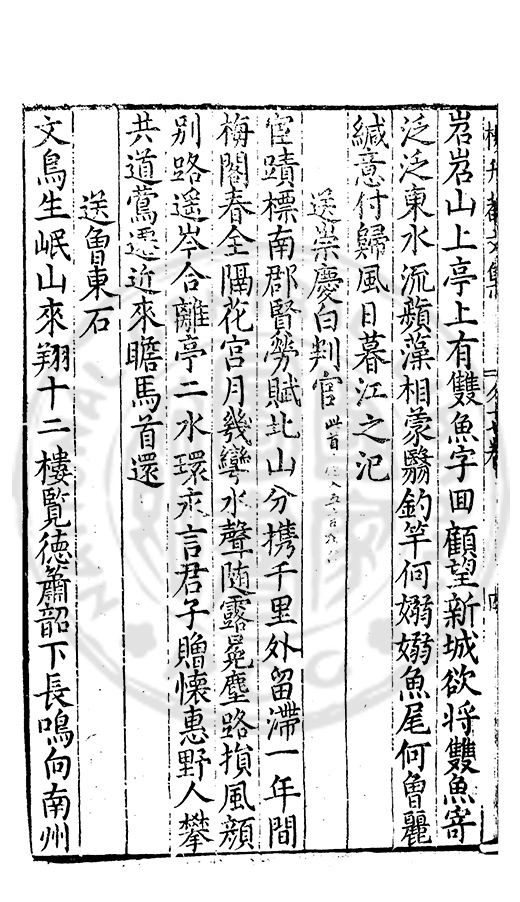 岧岧山上亭上有雙魚字回顧望新城欲将雙魚寄
泛泛東水流蘋藻相蒙翳釣竿何嫋嫋魚尾何魯麗
緘意付歸風日暮江之汜
送崇慶白判官 此首
宦蹟標南郡賢勞賦北山分携千里外留滯一年間
梅閣春全隔花宮月幾彎水聲随露冕塵路損風顔
别路遥岑合離亭二水環 言君子贈懐惠野人攀
共道鶯遷近来瞻馬首還
送魯東石
文鳥生岷山來翔十二樓覽德簫韶下長鳴向南州